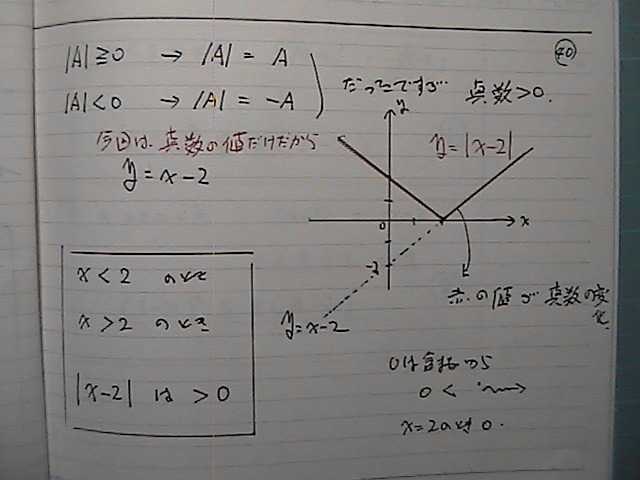 40
|A|≧0 → |A| = A
|A|<0 → |A| = -A
だったですが… 真数>0.
今回は、真数の値だけだから
y = x-2
y
y=|x-2|
x
0
-2
y=x-2
赤の値が真数の変化
x<2 のとき
x>2 のとき
|x-2| は >0
0は含まないから
0 <
x=2のとき 0.